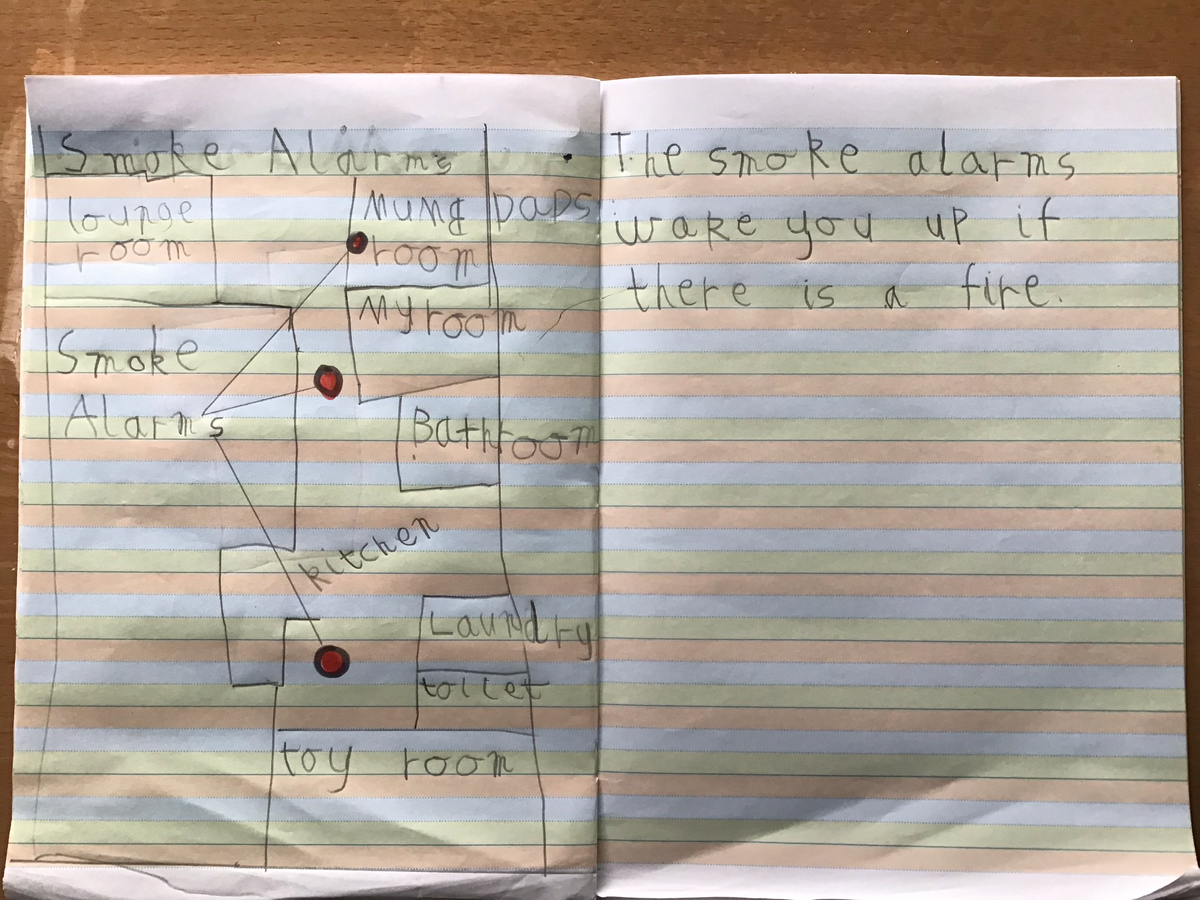 Smoke Alarms
lounge
room
Mum& DaDs
room
My room
Smoke
Alarms
Bathroom
kitchen
Laundry
toilet
toy room
The smoke alarms
wake you up if
there is a fire.